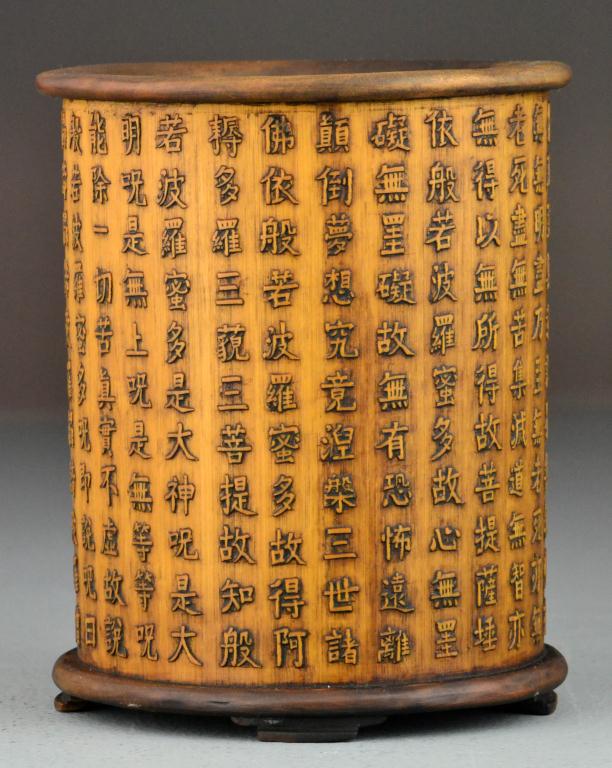 無無明盡乃至無老死亦無
老死盡無苦集滅道無智亦
無得以無所得故菩提薩埵
依般若波羅蜜多故心無罣
礙無罣礙故無有恐怖遠離
顛倒夢想究竟涅槃三世諸
佛依般若波羅蜜多故得阿
耨多羅三藐三菩提故知般
若波羅蜜多是大神呪是大
明呪是無上呪是無等等呪
能除一切苦眞實不虛故說
般若波羅蜜多呪即說呪曰